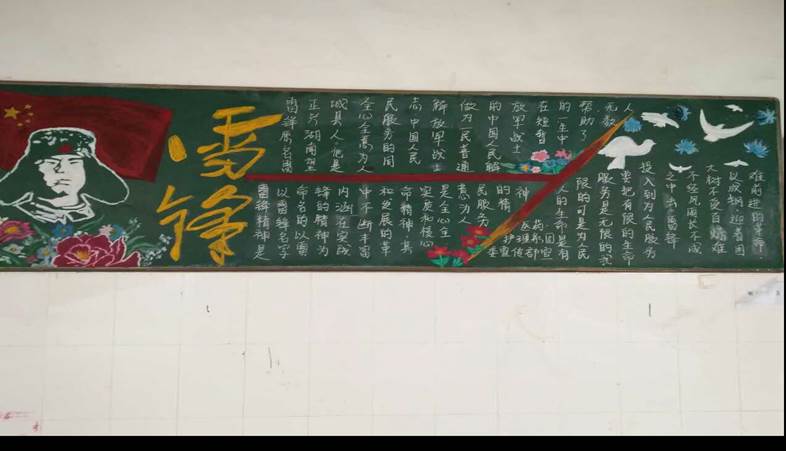 雷锋
雷锋原名雷
正兴湖南望
城县人他是
全心全意为人
民服务的同
志中国人民
解放军战士
做为一民普通
的中国人民解
放军战士
在短暂
的一生中
帮助了
无数
人
雷锋精神是
以雷锋名字
命名的以雷
锋的精神为
内涵在实践
中不断丰富
和发展的革
命精神其
实质和核心
是全心全
意为人
民服务
的精
神
人的生命是有
限的可是为民
服务是无限的我
要把有限的生命
投入到为人民服务
之中去雷锋
不经风雨长不成
大树不受百炼难
以成钢迎着困
难前进的革命